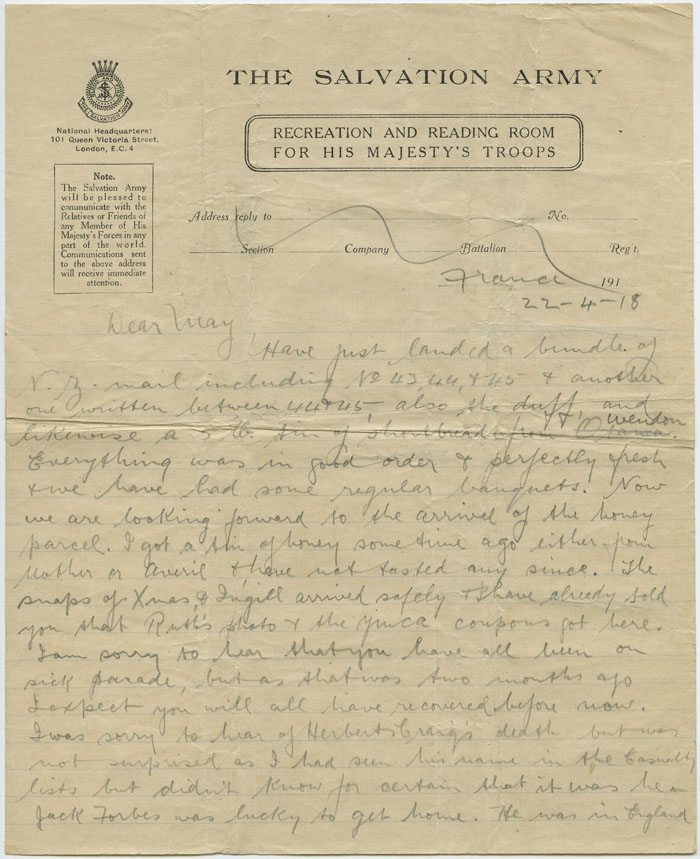 THE SALVATION ARMY
BLOOD AND FIRE
THE SALVATION ARMY
National Headquarters:
101 Queen Victoria Street,
London, E.C. 4
RECREATION AND READING ROOM
FOR HIS MAJESTY'S TROOPS
Note.
The Salvation Army
will be pleased to
communicate with the
Relatives or Friends of
any Member of His
Majesty's Forces in any
part of the world.
Communications sent
to the above address
will receive immediate
attention.
Address reply to No.
Section Company Battalion Reg't.
France 191
22-4-18
Dear May
Have just landed a bundle of
N.Z. mail including No 43, 44, & 45 & another
one written between 44 & 45, also the duff, and
likewise a 5 lb. tin of shortbread from Wendon
Everything was in good order & perfectly fresh
& we have had some regular banquets. Now
we are looking forward to the arrival of the honey
parcel. I got a tin of honey some time ago either from
Mother or Averil & have not tasted any since. The
snaps of Xmas, & Ingill arrived safely & I have already told
you that Ruth's photo & the Ymca coupons got here.
I am sorry to hear that you have all been on
sick parade, but as that was two months ago
I expect you will all have recovered before now.
I was sorry to hear of Herbert Craig's death but was
not surprised as I had seen his name in the Casualty
lists but didn't know for certain that it was he
Jack Forbes was lucky to get home. He was in England